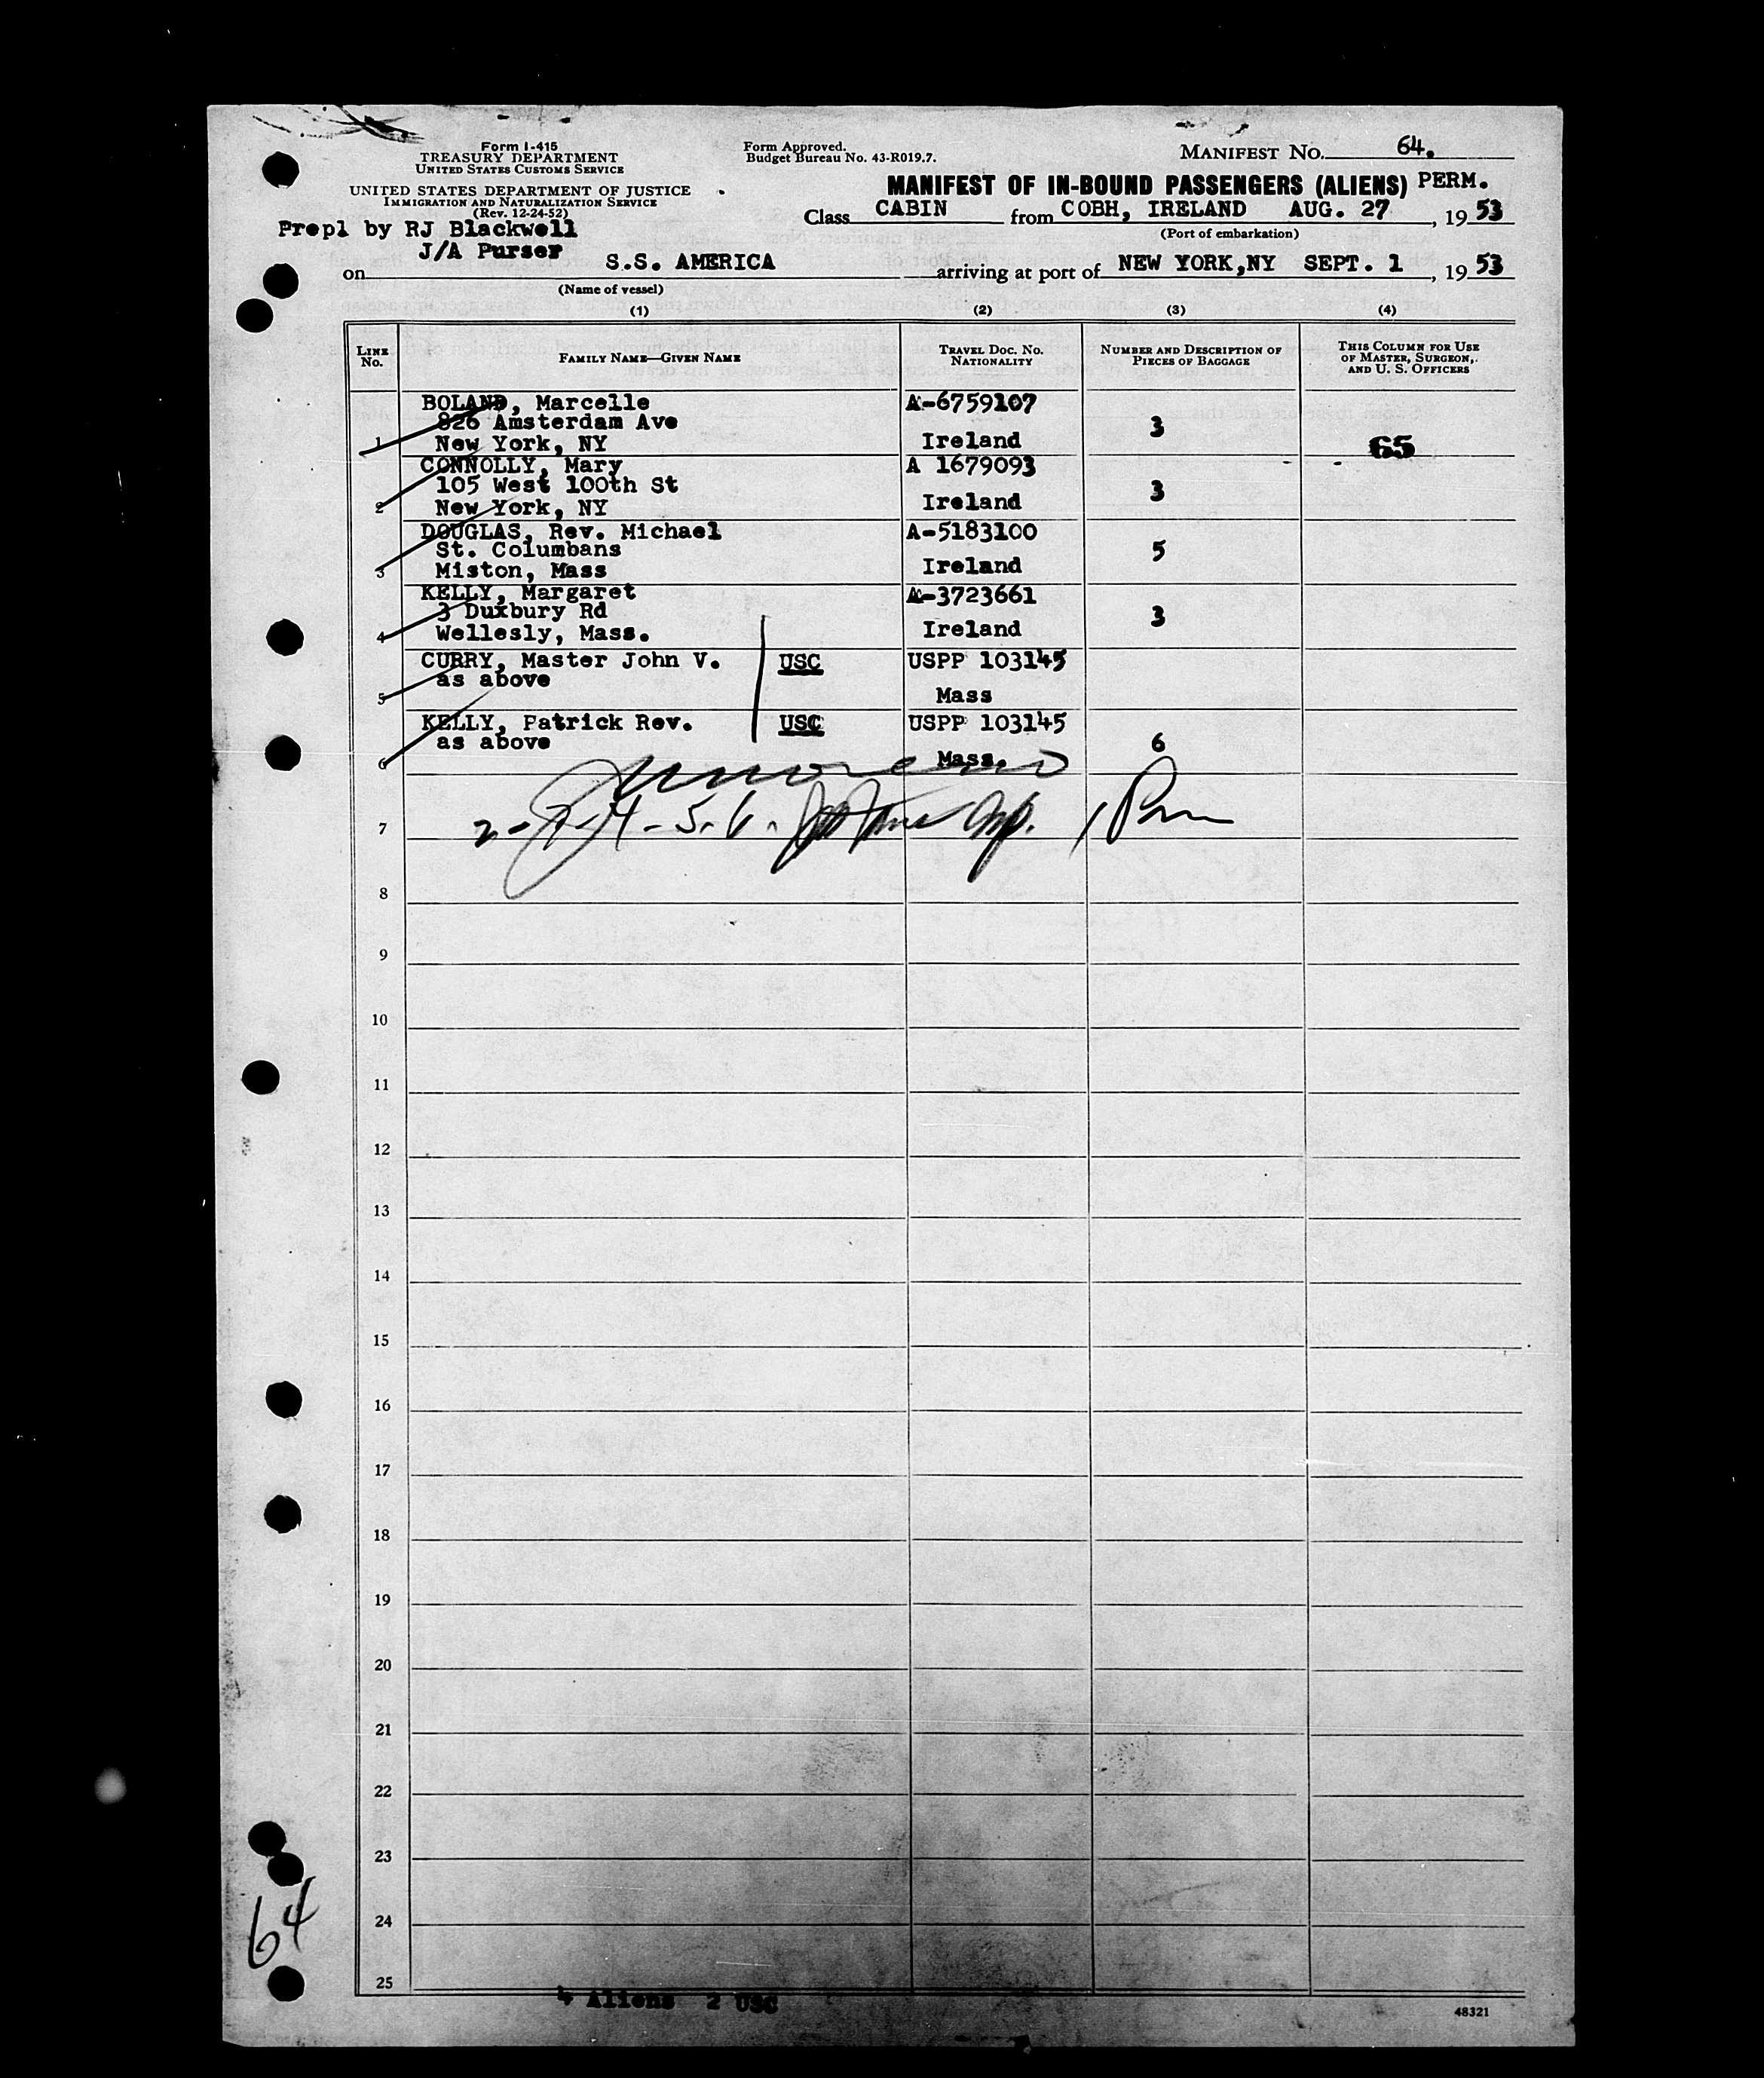 Form I-415
TREASURY DEPARTMENT
UNITED STATES CUSTOMS SERVICE
UNITED STATES DEPARTMENT OF JUSTICE
IMMIGRATION AND NATURALIZATION SERVICE
(Rev. 12-24-52)
Form Approved.
Budget Bureau No. 43-R019.7.
MANIFEST NO. 64.
MANIFEST OF IN-BOUND PASSENGERS (ALIENS) PERM.
Class CABIN from COBH, IRELAND AUG. 27, 1953
(Port of embarkation)
Prepl by RJ Blackwell
J/A Purser
on S.S. AMERICA arriving at port of NEW YORK,NY SEPT. 1, 1953
(Name of vessel)
(1) (2) (3) (4)
LINE No. FAMILY NAME—GIVEN NAME TRAVEL DOC. NO. NATIONALITY NUMBER AND DESCRIPTION OF PIECES OF BAGGAGE THIS COLUMN FOR USE OF MASTER, SURGEON, AND U. S. OFFICERS
BOLAND, Marcelle A-6759107
826 Amsterdam Ave 3
1 New York, NY Ireland 65
CONNOLLY, Mary A 1679093
105 West 100th St 3
2 New York, NY Ireland
DOUGLAS, Rev. Michael A-5183100
St. Columbans 5
3 Miston, Mass Ireland
KELLY, Margaret A-3723661
3 Duxbury Rd 3
4 Wellesly, Mass. Ireland
CURRY, Master John V. USC USPP 103145
as above
5 Mass
KELLY, Patrick Rev. USC USPP 103145
as above 6
6 Mass.
7 2-3-4-5-6.
8
9
10
11
12
13
14
15
16
17
18
19
20
21
22
23
24
25
64
4 Aliens 2 USC
48321